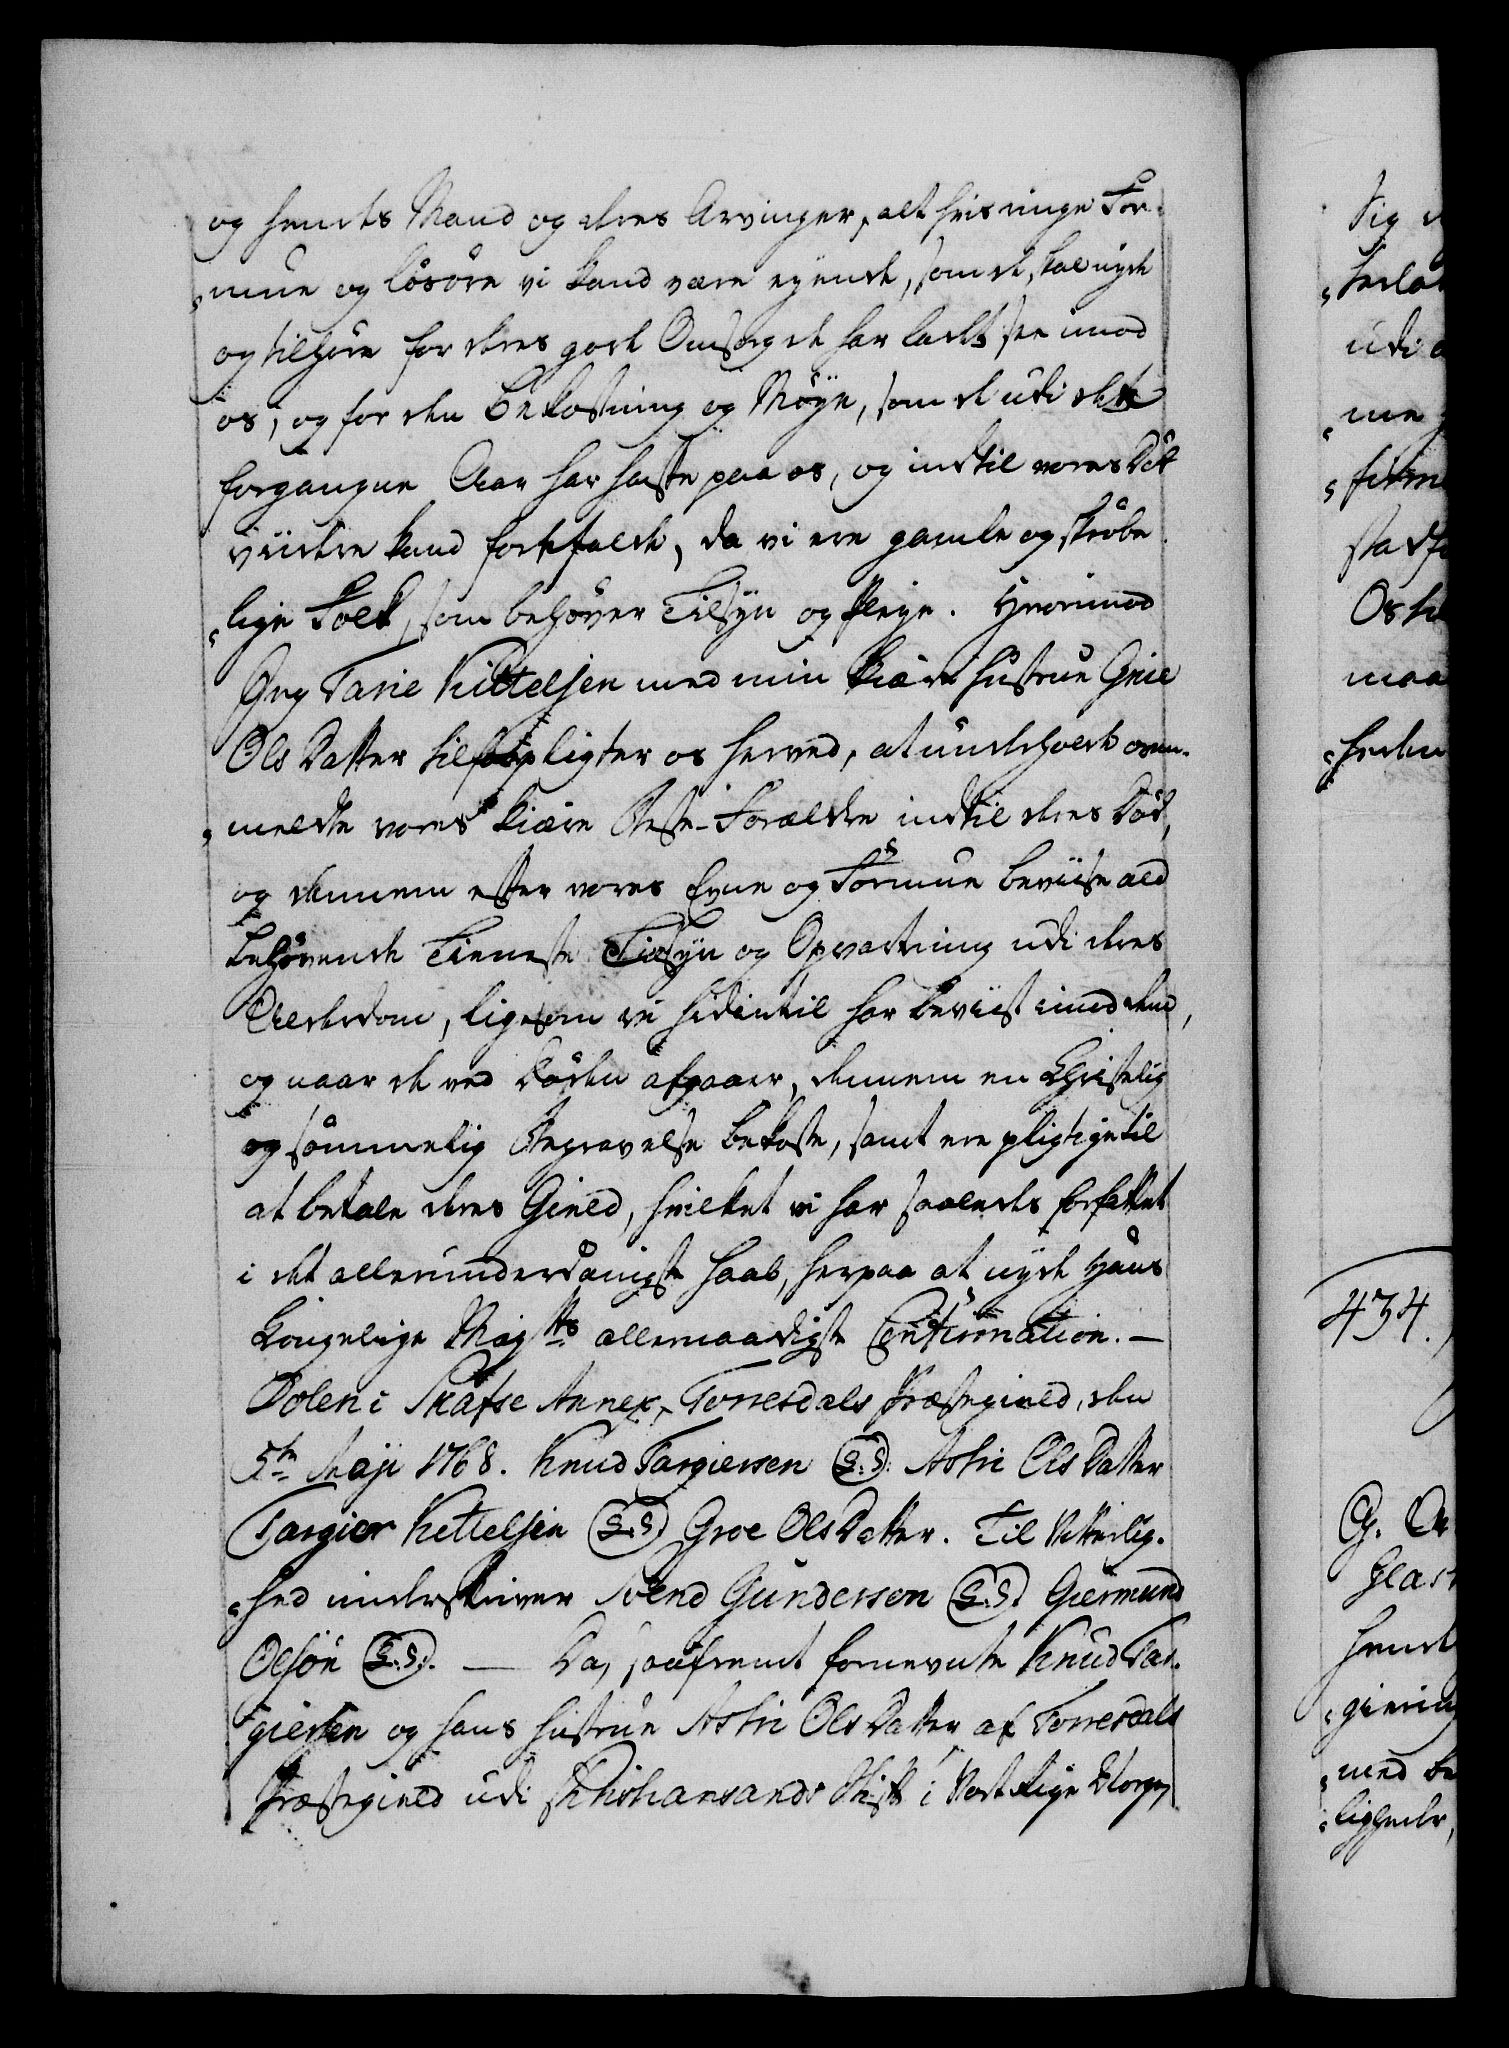 og hendes Mand og deres Arvinger, alt hvis ringe For-
„mue og lösöre vi kand være eyende, som de skal nyde
og tilhöre for deres gode Omsorg de har ladet see imod
os, og for den Bekostning og Möye, som de udi dette
forgangne Aar har hafte paa os, og indtil vores Död
viidere kand fortfalde, da vi ere gamle og skröbe-
„lige Folk, som behöver Tilsyn og Pleye. Hvorimod
Jeg Tarie Kittelsen med min kiære Hustrue Groe
Ols Datter tilforpligter os herved, at underholde oven-
„meldte vores kiære Beste-Forældre indtil deres Död,
og dennem efter vores Evne og Formue beviise ald
behövende Tieneste Tilsyn og Opvartning udi deres
Alderdom, ligesom vi hidindtil har beviist imod dem,
og naar de ved Döden afgaaer, dennem en Christelig
og sömmelig Begravelse bekoste, samt ere pligtige til
at betale deres Gield, hvilket vi har saaledes forfattet
i det allerunderdanigste Haab, herpaa at nyde Hans
Kongelige Maytts allernaadigste Confirmation. —
Dolen i Skafse Annex, Torresdals Præstegield, den
5te Maji 1768. Knud Targiersen (L.S.) Astri Ols Datter
Targier Kettelsen (L.S.) Groe Ols Datter. Til Vitterlig-
„hed underskriver Svend Gundersen (L.S.) Giermund
Olsön (L.S.). — Da, saafremt fornevnte Knud Tar-
giersen og hans Hustrue Astri Ols Datter af Torresdals
Præstegield udi Christiansands Stift i Vort Rige Norge,
434.